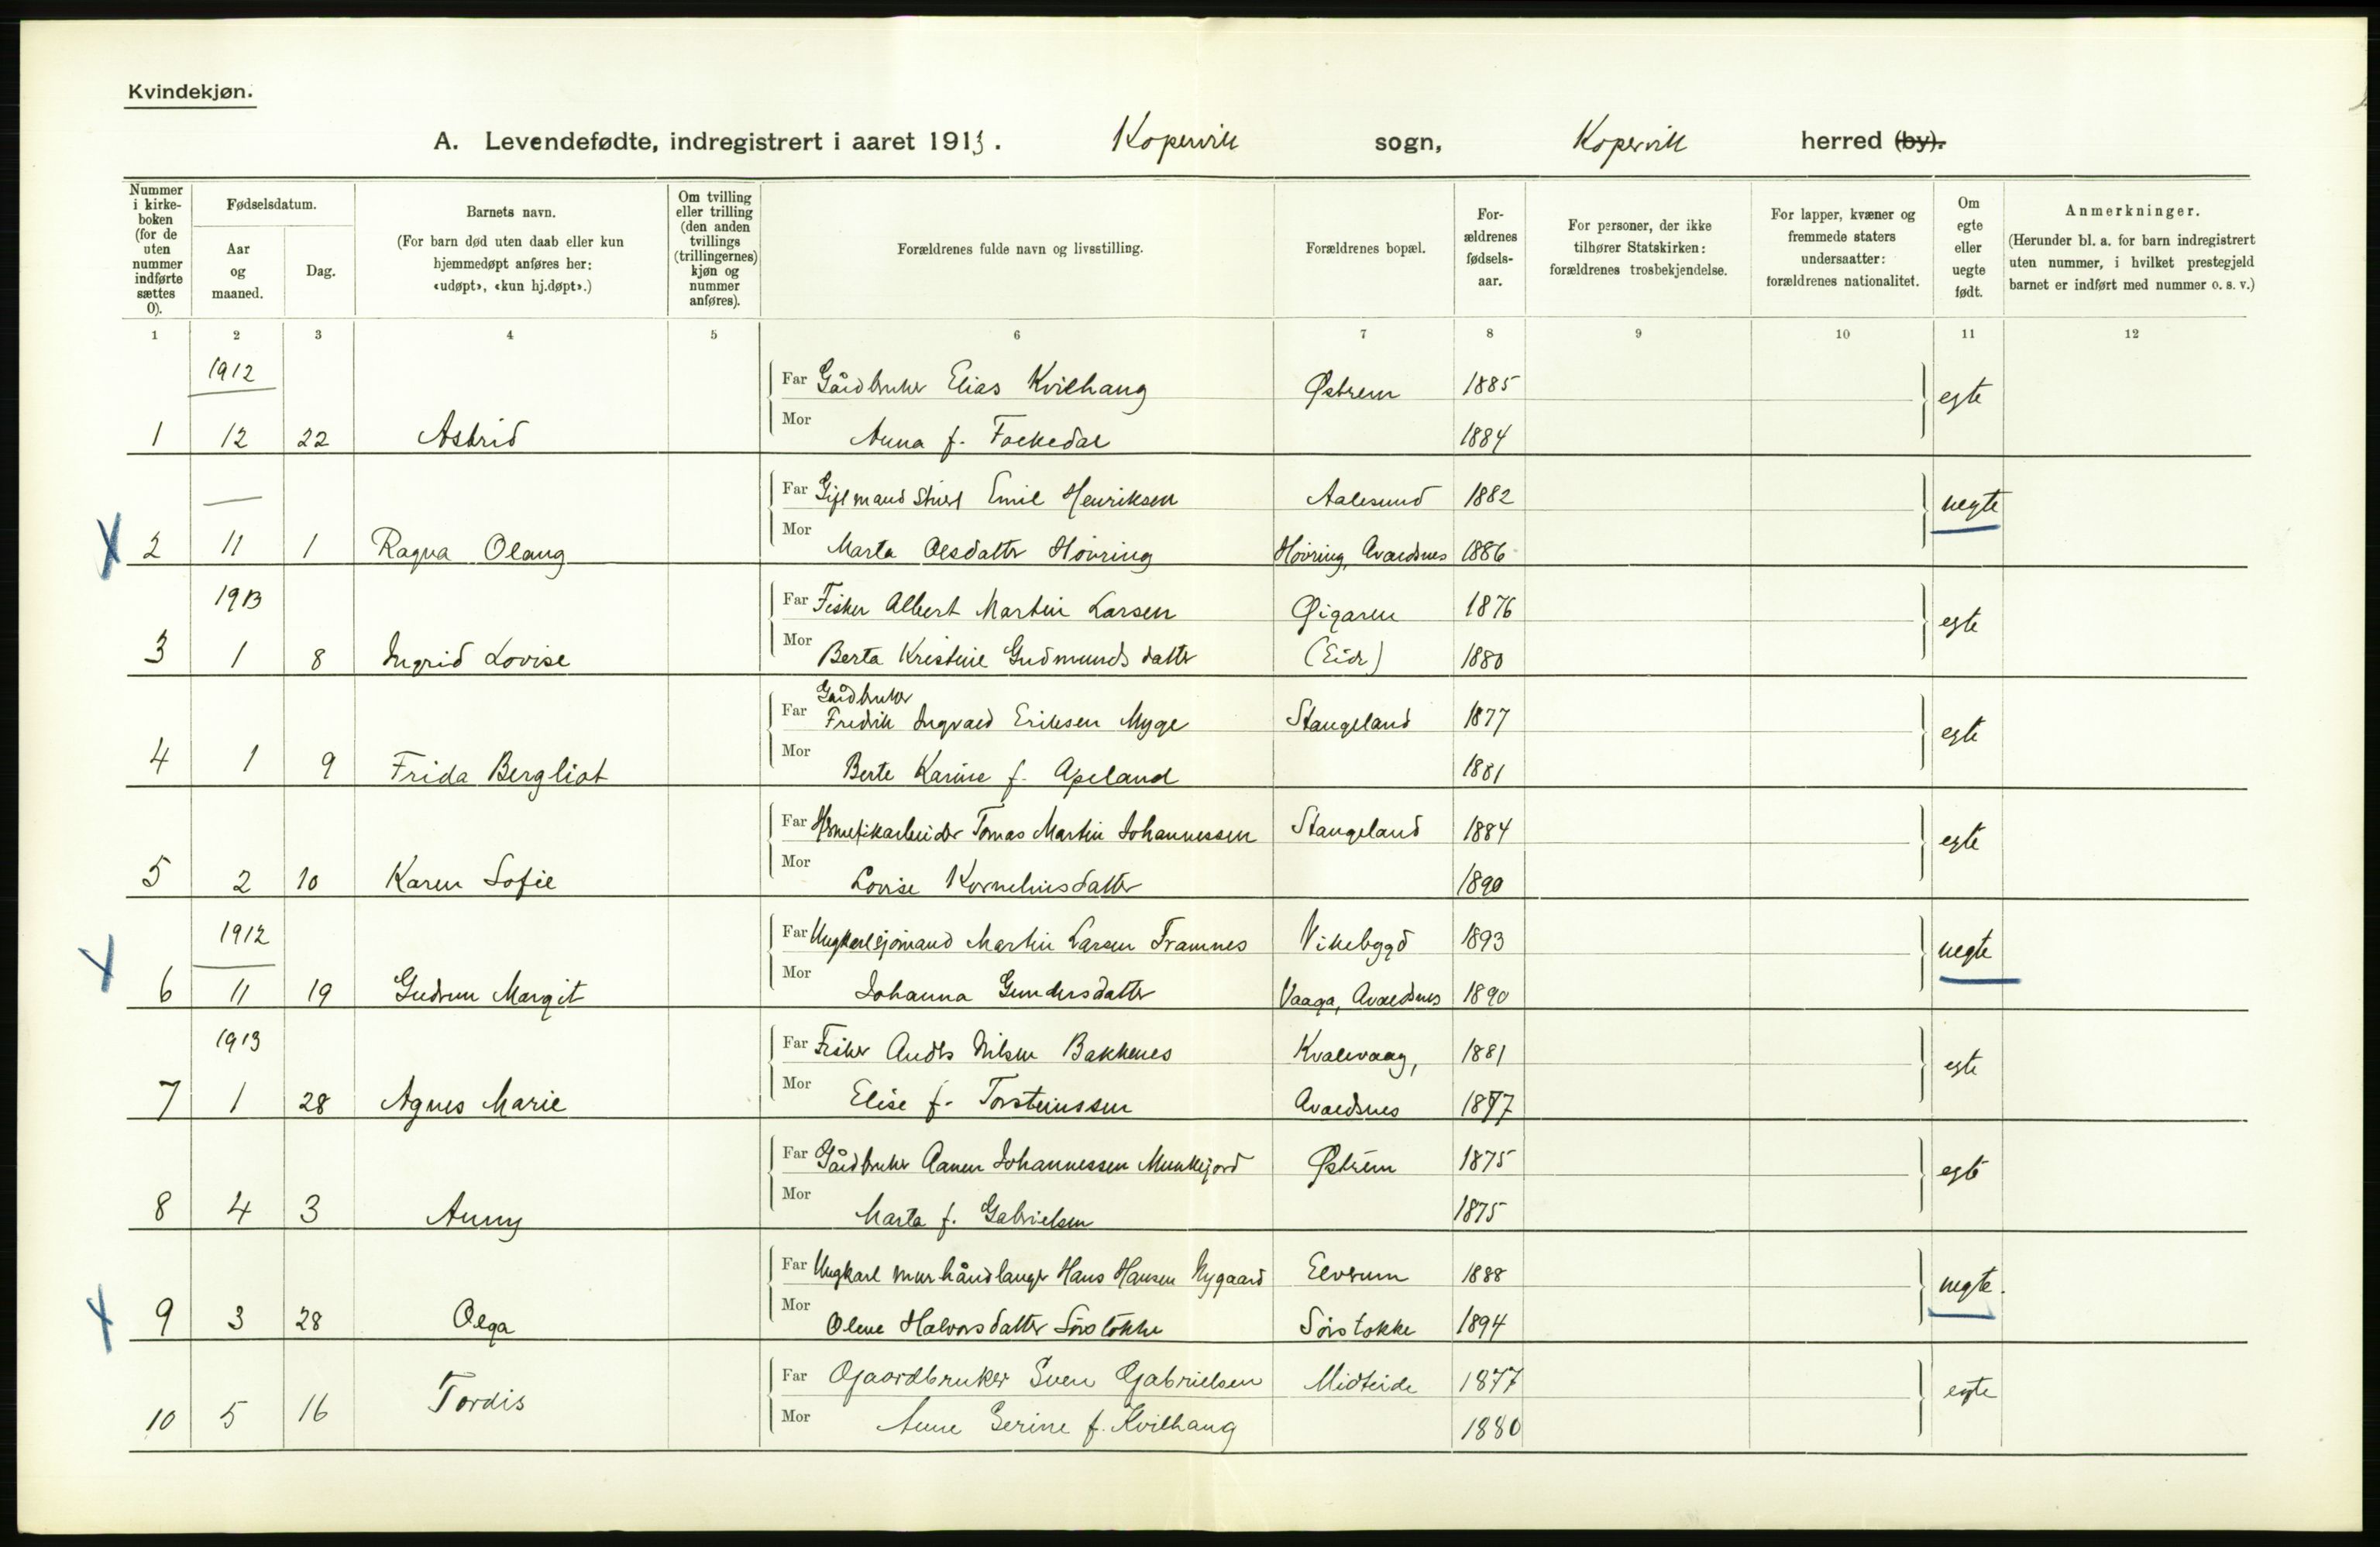 Kvindekjøn.
A. Levendefødte, indregistrert i aaret 1913. Kopervik sogn, Kopervik herred (by).
Nummer i kirkeboken (for de uten nummer indførte sættes 0).
Fødselsdatum.
Aar og maaned.
Dag.
Barnets navn.
(For barn død uten daab eller kun hjemmedøpt anføres her: «udøpt», «kun hj.døpt».)
Om tvilling eller trilling (den anden tvillings (trillingernes) kjøn og nummer anføres).
Forældrenes fulde navn og livsstilling.
Forældrenes bopæl.
For-ældrenes fødsels-aar.
For personer, der ikke tilhører Statskirken: forældrenes trosbekjendelse.
For lapper, kvæner og fremmede staters undersaatter: forældrenes nationalitet.
Om egte eller uegte født.
Anmerkninger.
(Herunder bl. a. for barn indregistrert uten nummer, i hvilket prestegjeld barnet er indført med nummer o. s. v.)
1 2 3 4 5 6 7 8 9 10 11 12
1912
Far Gårdbruker Elias Kvilhaug Østrem 1885 egte
1 12 22 Astrid Mor Anna f. Fockedal 1884
Far Gift mand Emil Henriksen Aalesund 1882 uegte
X 2 11 1 Ragna Olaug Mor Marta Olsdatter Høvring Høvring, Avaldsnes 1886
1913
Far Fisker Albert Martin Larsen Øigaren 1876 egte
3 1 8 Ingrid Lovise Mor Berta Kristine Gudmundsdatter (Eide) 1880
Gårdbruker
Far Fredrik Ingvald Eriksen Myge Stangeland 1877 egte
4 1 9 Frida Bergliot Mor Berte Karine f. Apeland 1881
Far Hermetikarbeider Tomas Martin Johannessen Stangeland 1884 egte
5 2 10 Karen Sofie Mor Lovise Korneliusdatter 1890
1912
Far Ungkarl sjømand Martin Larsen Framnes Vikebygd 1893 uegte
X 6 11 19 Gudrun Margit Mor Johanna Gundersdatter Vaaga, Avaldsnes 1890
1913
Far Fisker Anders Nilsen Bakkenes Kvalevaag, 1881 egte
7 1 28 Agnes Marie Mor Elise f. Torsteinssen Avaldsnes 1877
Far Gårdbruker Aanen Johannessen Munkejord Østrem 1875 egte
8 4 3 Anny Mor Marta f. Gabrielsen 1875
Far Ungkarl murhåndlanger Hans Hansen Nygaard Elverum 1888 uegte.
X 9 3 28 Olga Mor Olene Halvorsdatter Sørstokke Sørstokke 1894
Far Gaardbruker Sven Gabrielsen Midteide 1877 egte
10 5 16 Tordis Mor Anne Serine f. Kvilhaug 1880